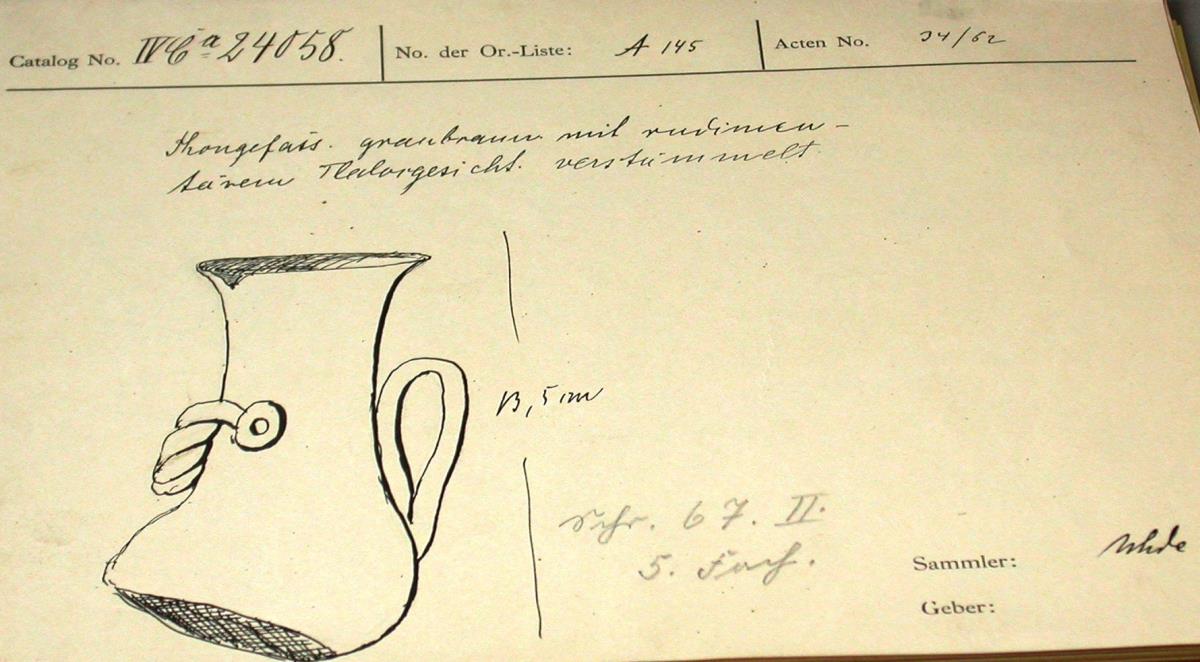 Catalog No. IV Ca 24058. No. der Or.-Liste: A 145 Acten No. 34/62
Thongefäss. graubraun mit rudimen-
tärem Tlalocgesicht. verstümmelt.
13,5 cm
Schr. 67. II.
5. Fach.
Sammler: Uhde
Geber: